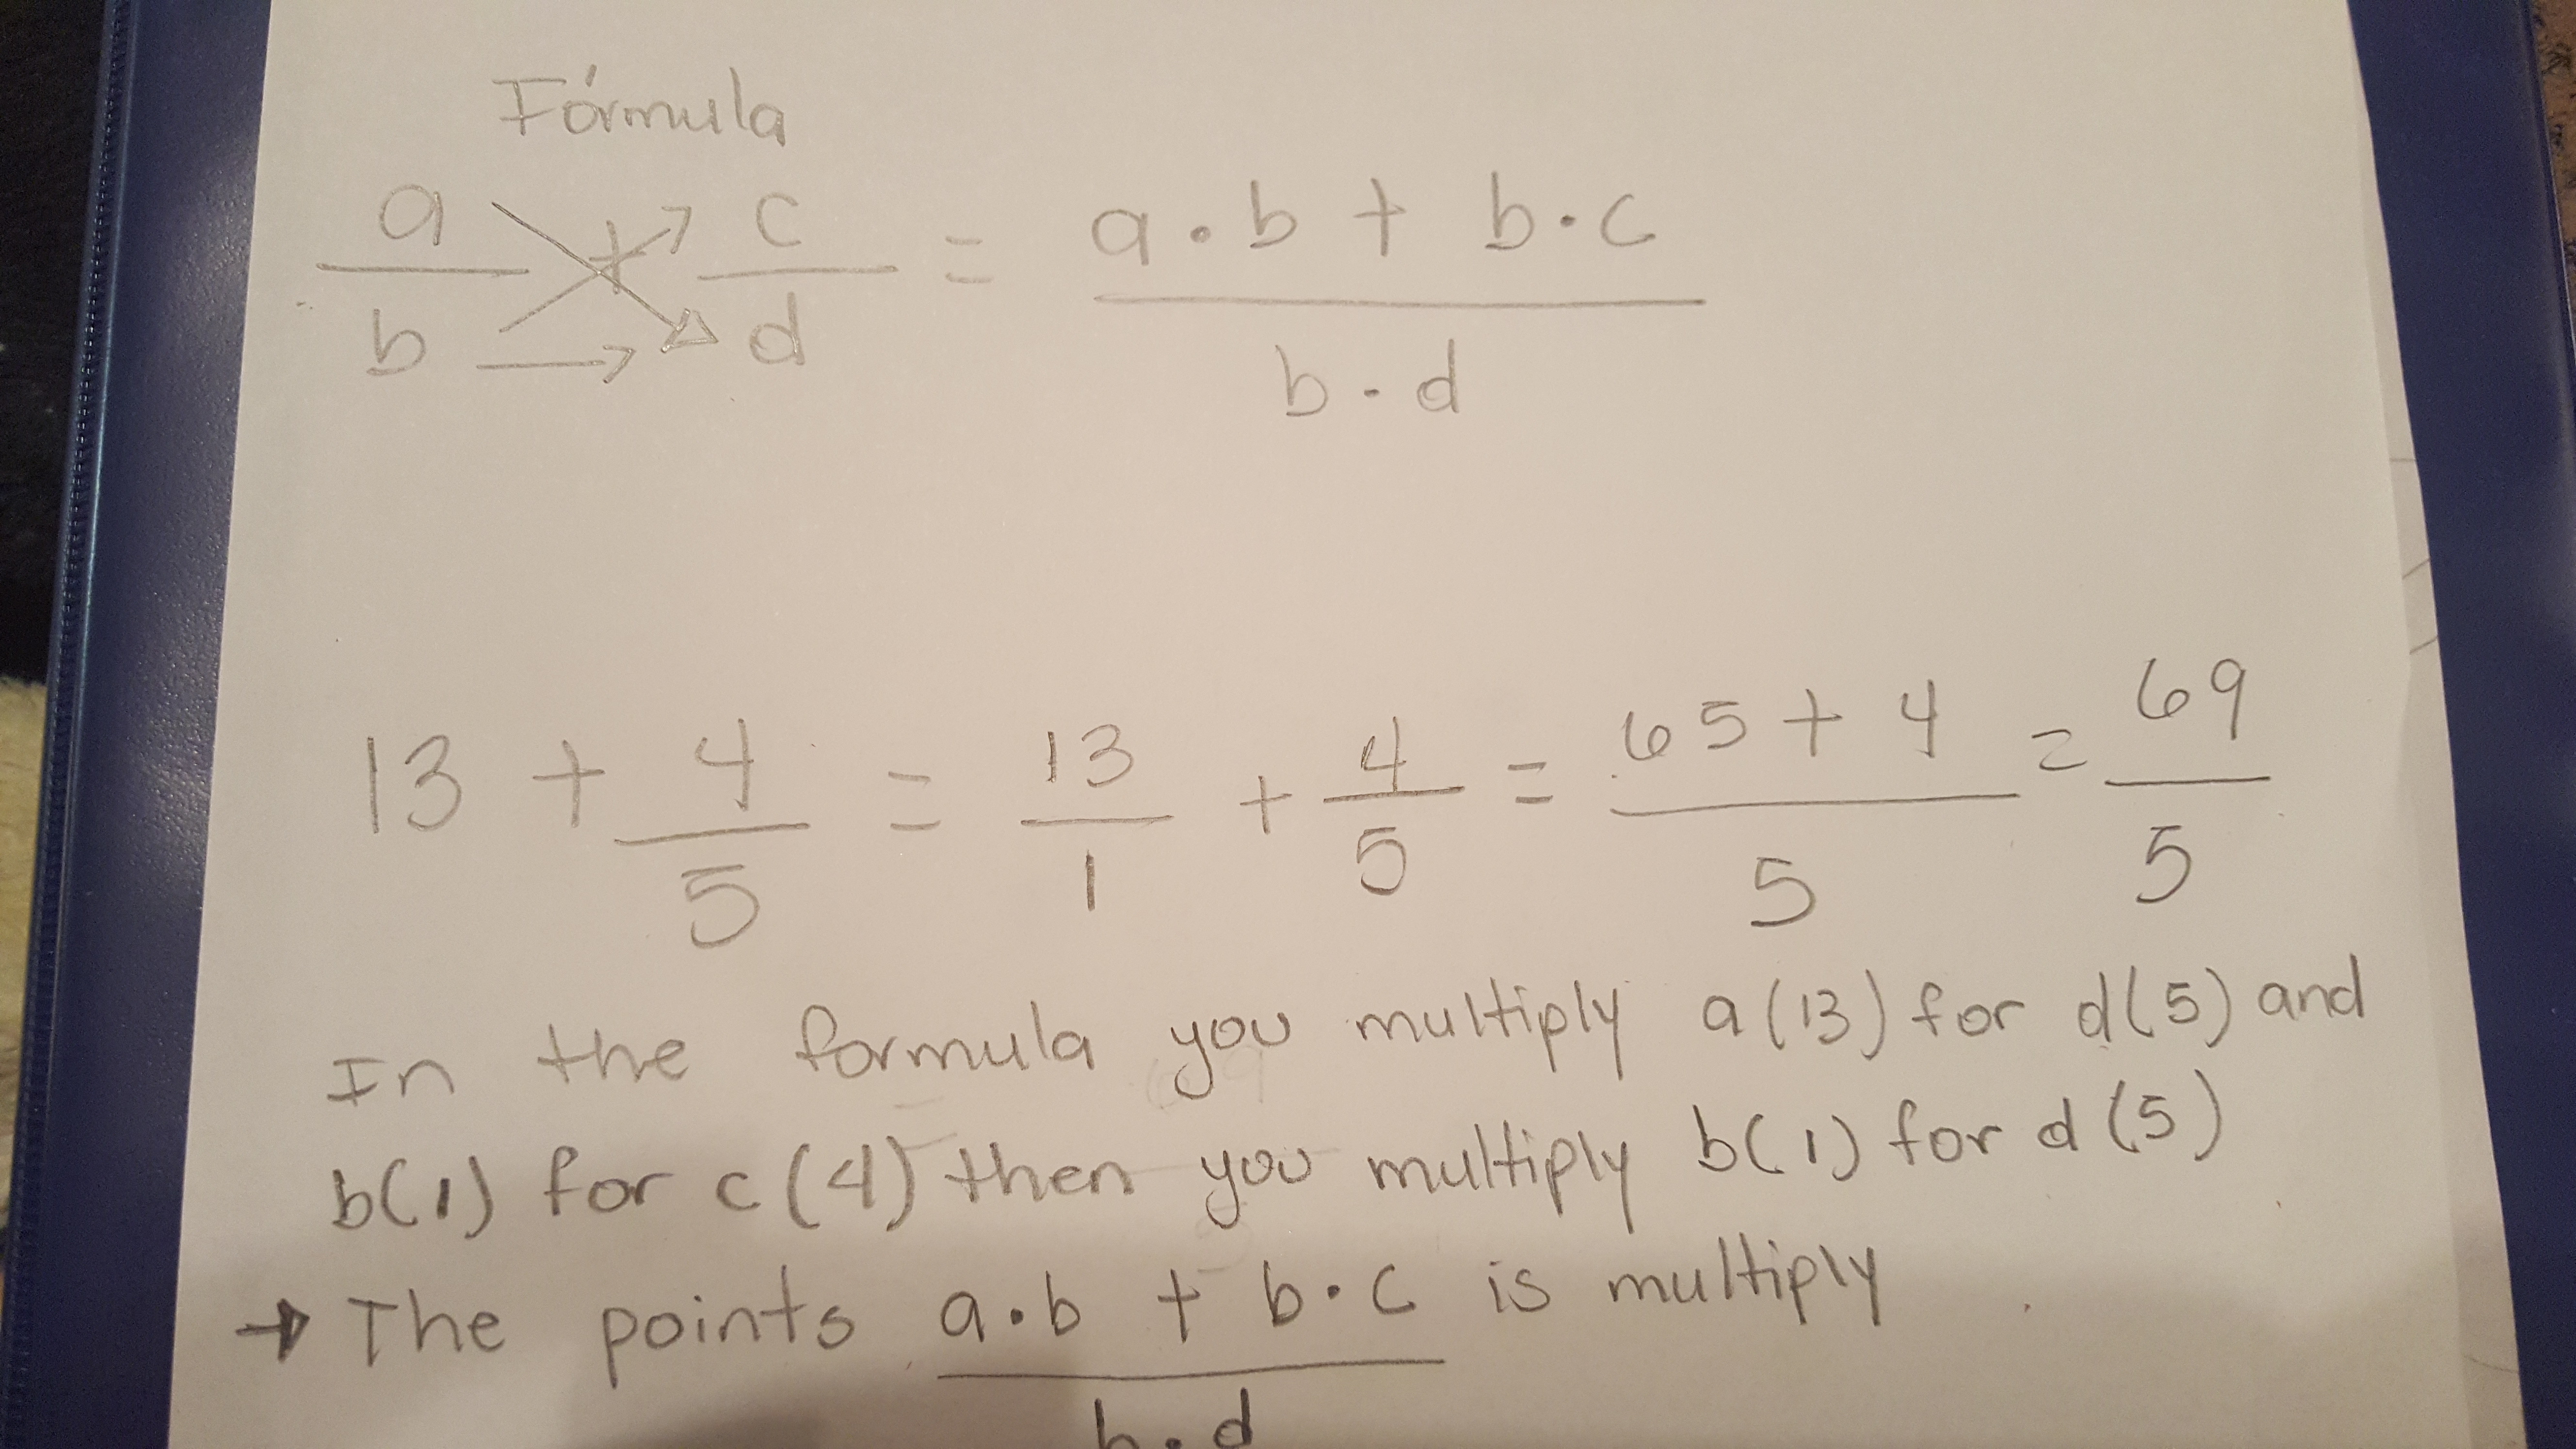 Fórmula
a/b + c/d = (a·b + b·c)/(b·d)
13 + 4/5 = 13/1 + 4/5 = (65 + 4)/5 = 69/5
In the formula you multiply a(13) for d(5) and
b(1) for c(4) then you multiply b(1) for d(5)
→ The points (a·b + b·c)/(b·d) is multiply